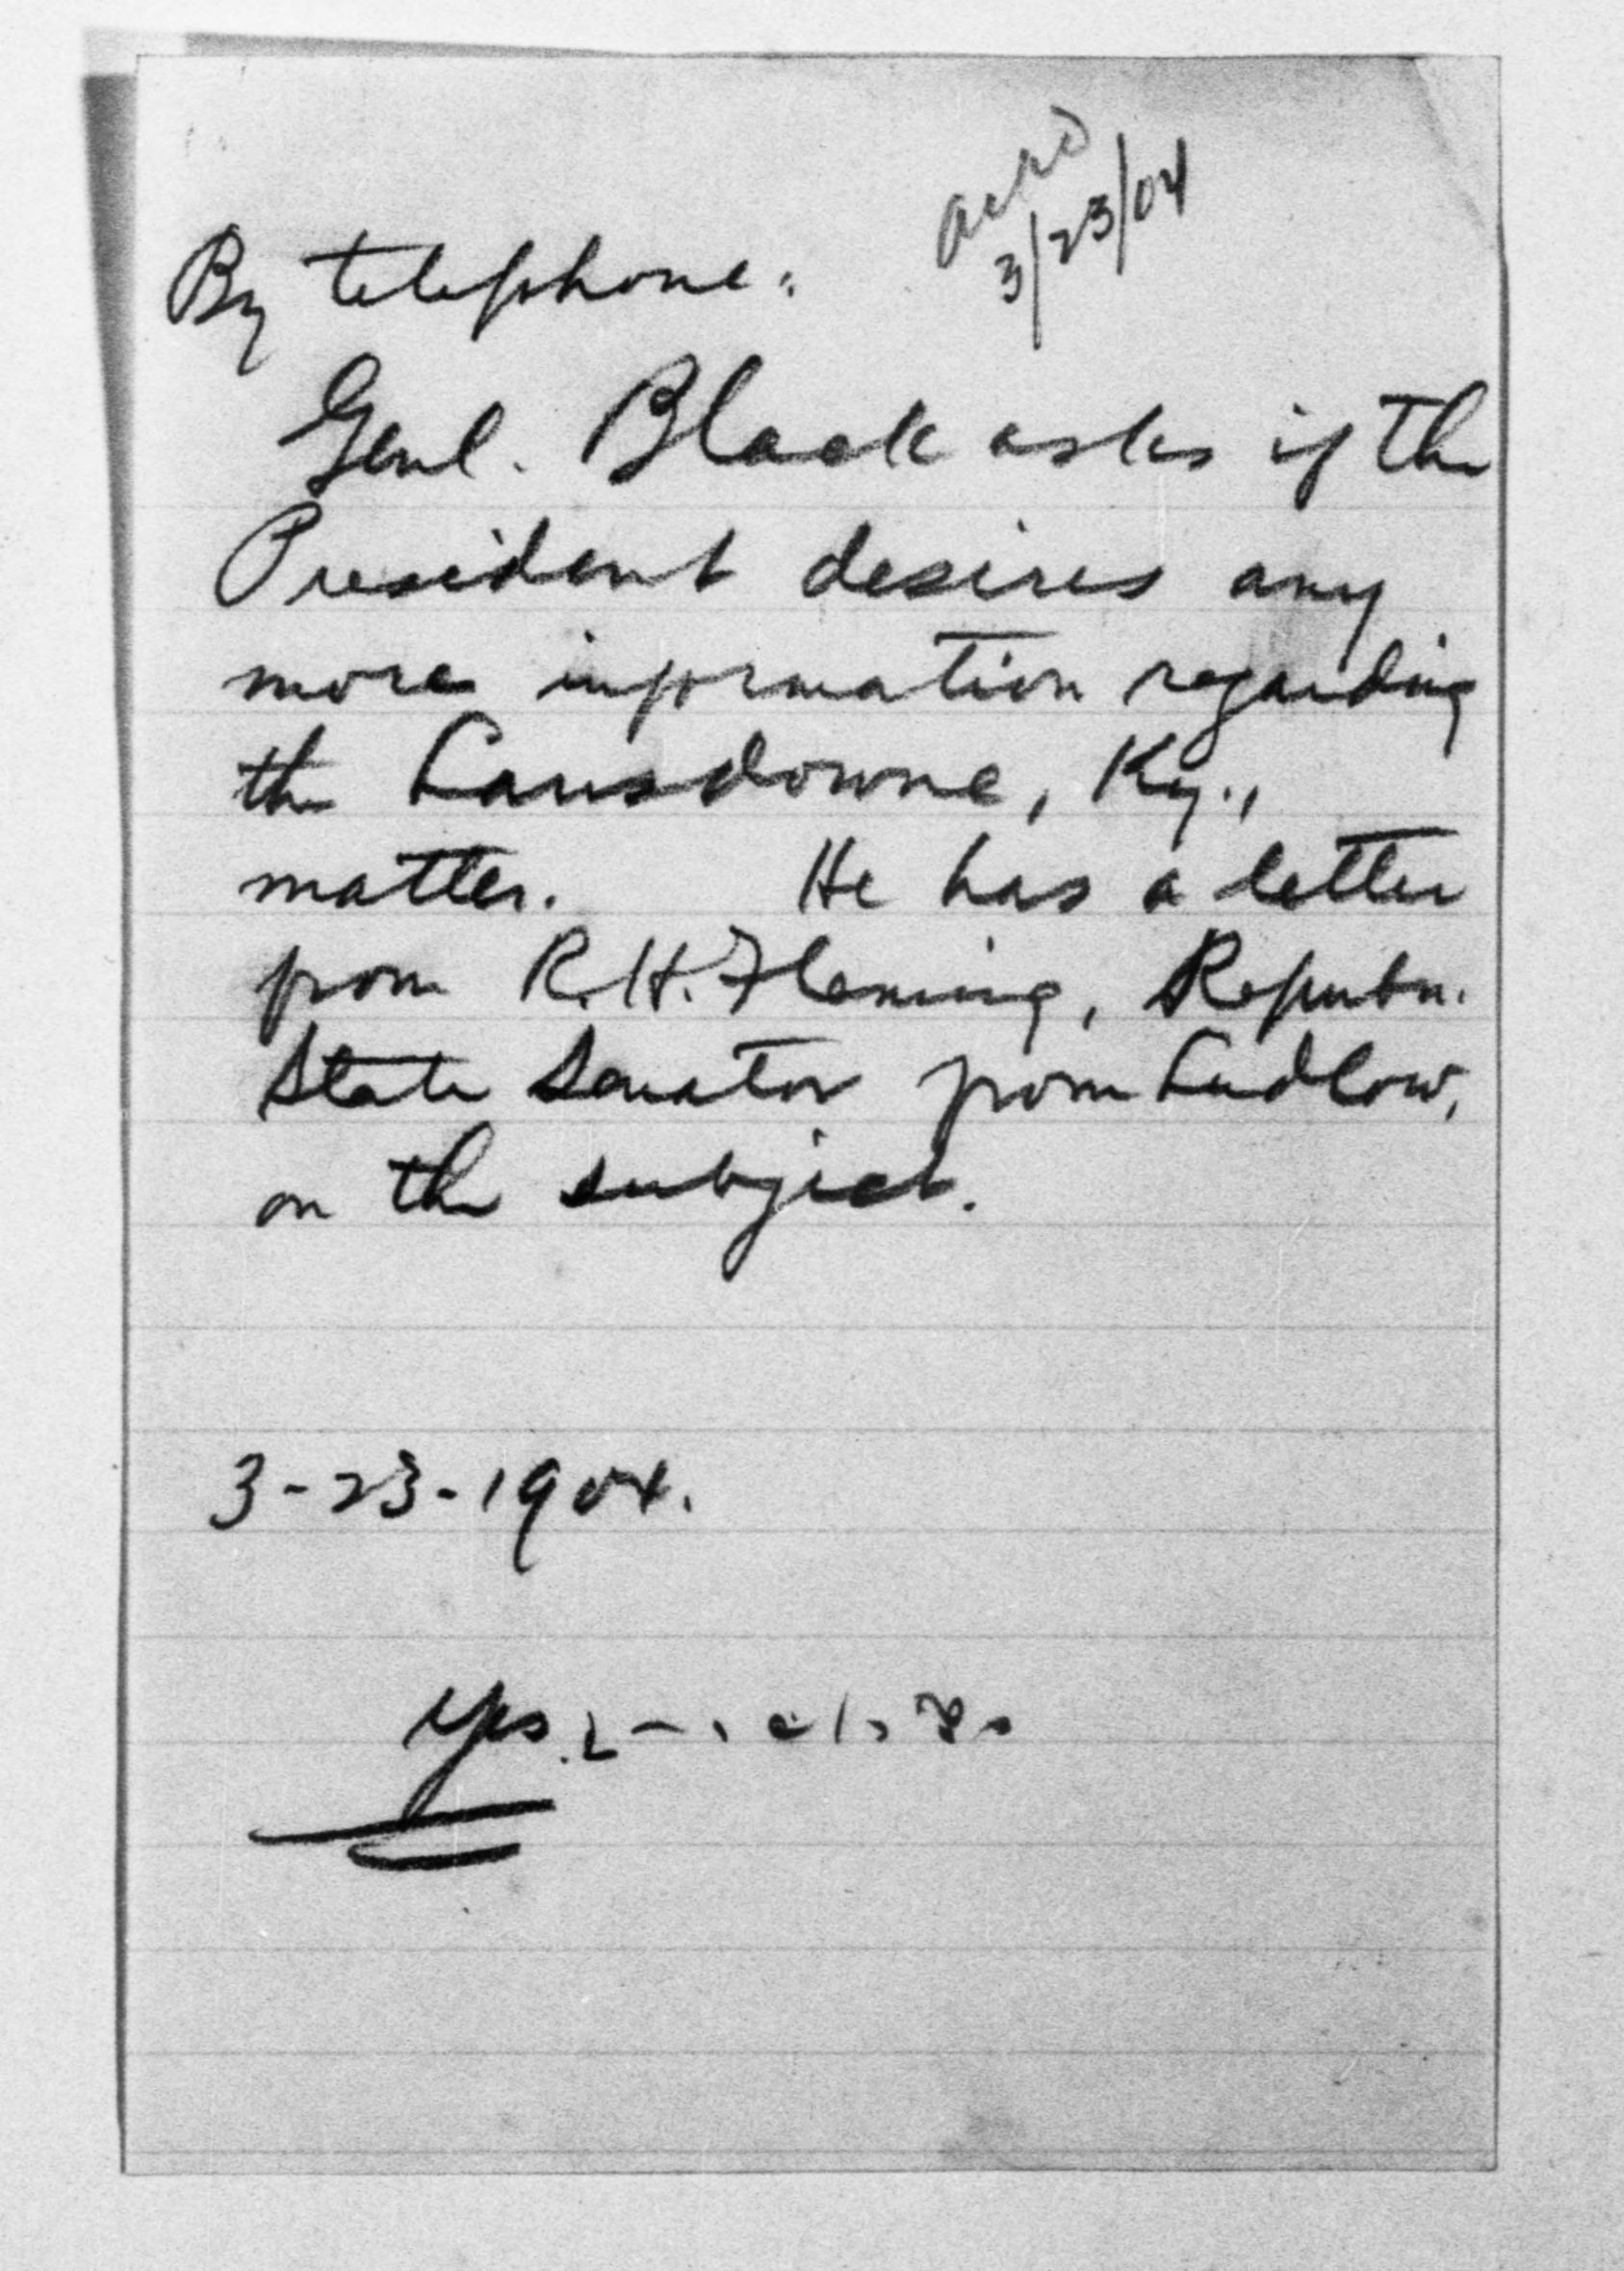 ackd
3/23/04
By telephone:
Genl. Black asks if the
President desires any
more information regarding
the Lansdowne, Ky.,
matter. He has a letter
from R.H. Fleming, Repubn.
State Senator from Ludlow,
on the subject.
3-23-1904.
Yes.